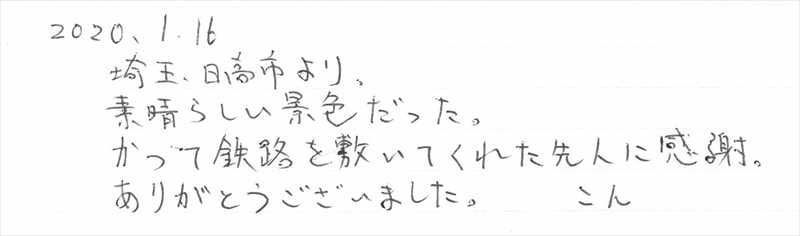 2020、1.16
埼玉、日高市より、
素晴らしい景色だった。
かつて鉄路を敷いてくれた先人に感謝。
ありがとうございました。 こん